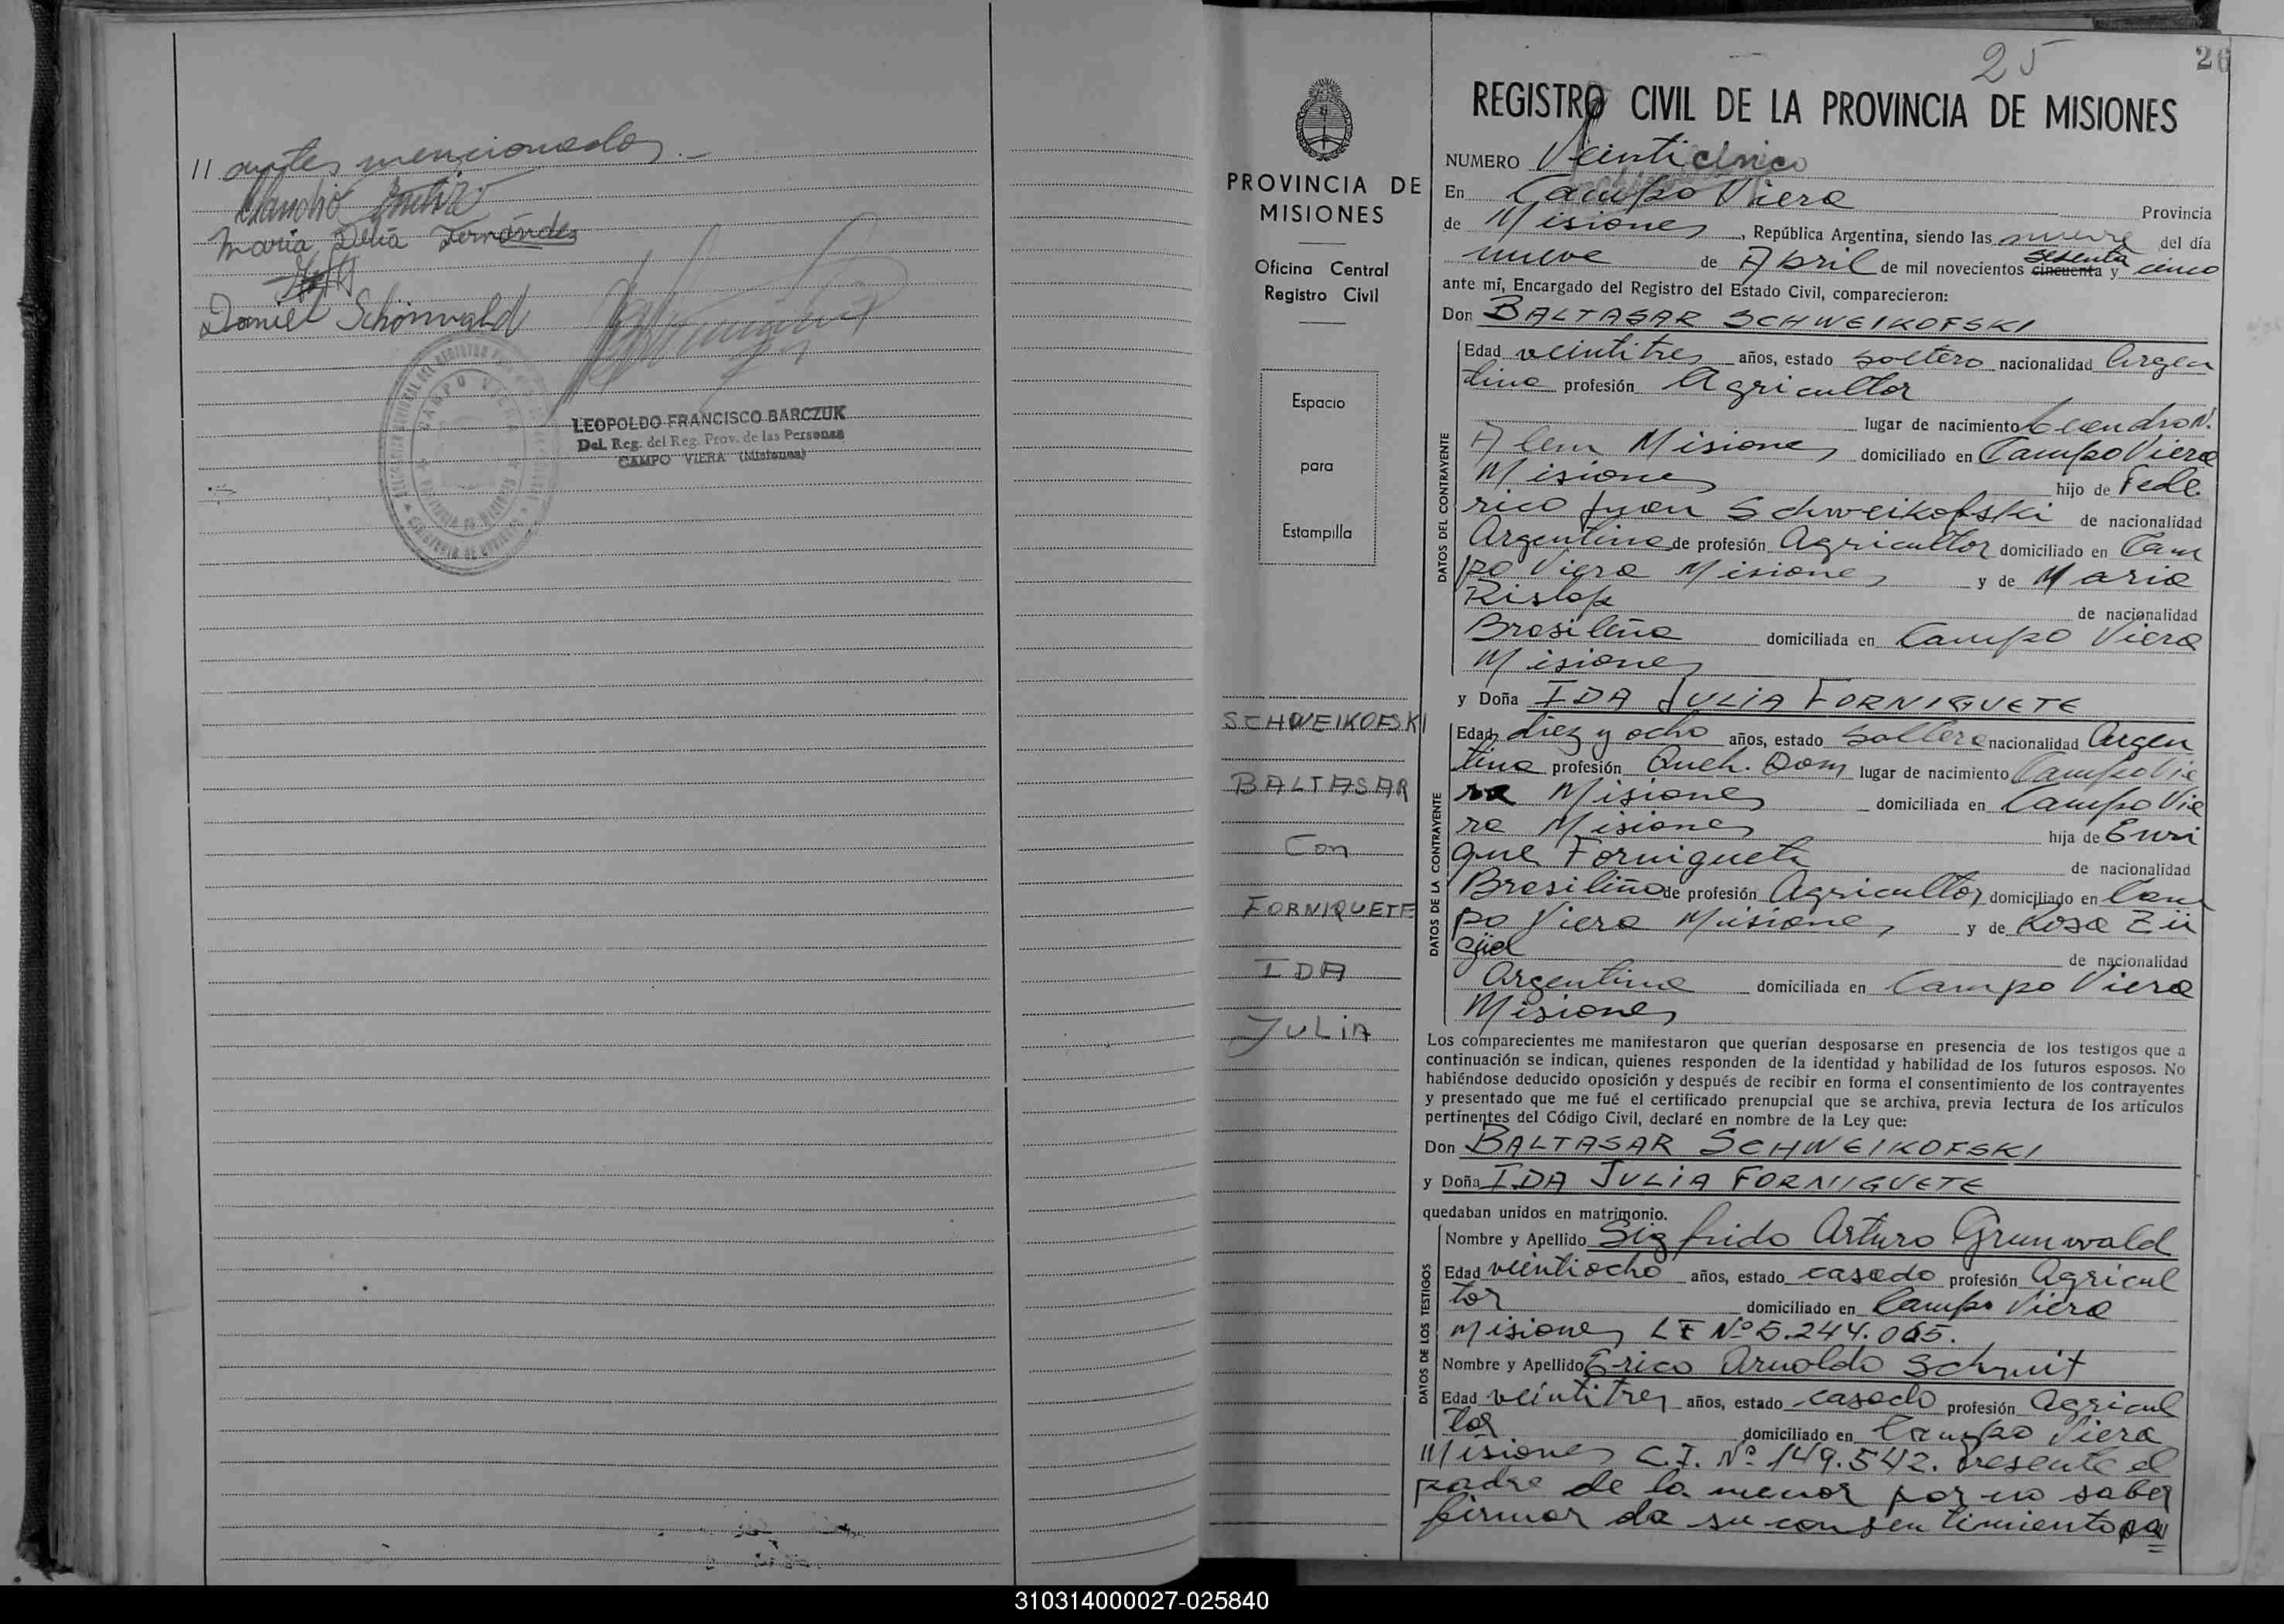 // antes mencionados.-
Claudio
Maria Delia Fernández
Daniel Schönwald
CAMPO VIERA
LEOPOLDO FRANCISCO BARCZUK
Del. Reg. del Reg. Prov. de las Personas
CAMPO VIERA (Misiones)
PROVINCIA DE
MISIONES
Oficina Central
Registro Civil
Espacio
para
Estampilla
SCHWEIKOFSKI
BALTASAR
Con
FORNIQUETE
IDA
JULIA
25
26
REGISTRO CIVIL DE LA PROVINCIA DE MISIONES
NUMERO Veinticinco
En Campo Viera Provincia
de Misiones, República Argentina, siendo las nueve del día
nueve de Abril de mil novecientos cincuenta sesenta y cinco
ante mí, Encargado del Registro del Estado Civil, comparecieron:
Don BALTASAR SCHWEIKOFSKI
DATOS DEL CONTRAYENTE
Edad veintitres años, estado soltero nacionalidad Argen
tina profesión Agricultor
lugar de nacimiento Leandro N.
Alem Misiones domiciliado en Campo Viera
Misiones hijo de Fede
rico Juan Schweikofski de nacionalidad
Argentina de profesión Agricultor domiciliado en Cam
po Viera Misiones y de Maria
Ristof de nacionalidad
Brasileña domiciliada en Campo Viera
Misiones
y Doña IDA JULIA FORNIGUETE
DATOS DE LA CONTRAYENTE
Edad diez y ocho años, estado Soltera nacionalidad Argen
tina profesión Queh. Dom lugar de nacimiento Campo Vie
ra Misiones domiciliada en Campo Vie
ra Misiones hija de Enri
que Forniguete de nacionalidad
Brasileño de profesión Agricultor domiciliado en Cam
po Viera Misiones, y de Rosa Zü
güel de nacionalidad
Argentina domiciliada en Campo Viera
Misiones
Los comparecientes me manifestaron que querían desposarse en presencia de los testigos que a
continuación se indican, quienes responden de la identidad y habilidad de los futuros esposos. No
habiéndose deducido oposición y después de recibir en forma el consentimiento de los contrayentes
y presentado que me fué el certificado prenupcial que se archiva, previa lectura de los artículos
pertinentes del Código Civil, declaré en nombre de la Ley que:
Don BALTASAR SCHWEIKOFSKI
y Doña IDA JULIA FORNIGUETE
quedaban unidos en matrimonio.
DATOS DE LOS TESTIGOS
Nombre y Apellido Sigfrido Arturo Grunwald
Edad veintiocho años, estado casado profesión Agricul
tor domiciliado en Campo Viera
Misiones LE Nº 5.244.065.
Nombre y Apellido Erico Arnoldo Schmit
Edad veintitres años, estado casado profesión Agricul
tor domiciliado en Campo Viera
Misiones C.I. Nº 149.542. Presente el
padre de la menor por no saber
firmar da su consentimiento pa
310314000027-025840